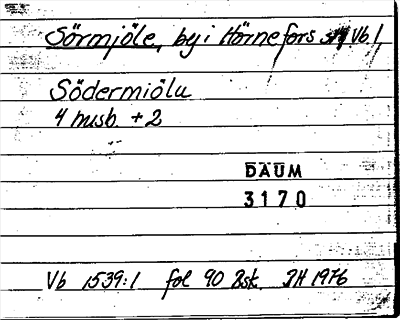 Sörmjöle, by i Hörnefors Vb l,
Södermiölu
4 husb. + 2
DAUM
3170
Vb 1539:1 fol 90 Bsk. JH 1976